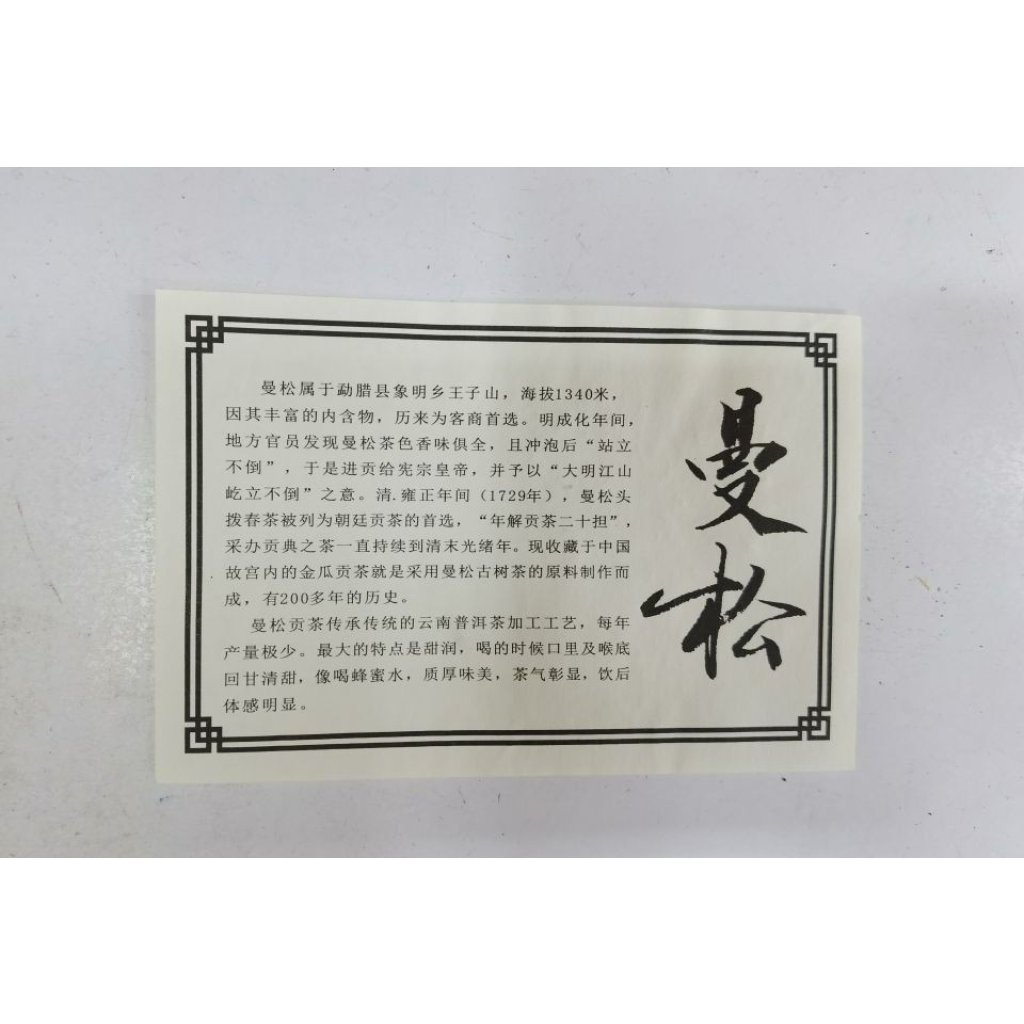 曼松属于勐腊县象明乡王子山，海拔1340米，
因其丰富的内含物，历来为客商首选。明成化年间，
地方官员发现曼松茶色香味俱全，且冲泡后“站立
不倒”，于是进贡给宪宗皇帝，并予以“大明江山
屹立不倒”之意。清.雍正年间（1729年），曼松头
拨春茶被列为朝廷贡茶的首选，“年解贡茶二十担”，
采办贡典之茶一直持续到清末光绪年。现收藏于中国
故宫内的金瓜贡茶就是采用曼松古树茶的原料制作而
成，有200多年的历史。
曼松贡茶传承传统的云南普洱茶加工工艺，每年
产量极少。最大的特点是甜润，喝的时候口里及喉底
回甘清甜，像喝蜂蜜水，质厚味美，茶气彰显，饮后
体感明显。
曼松